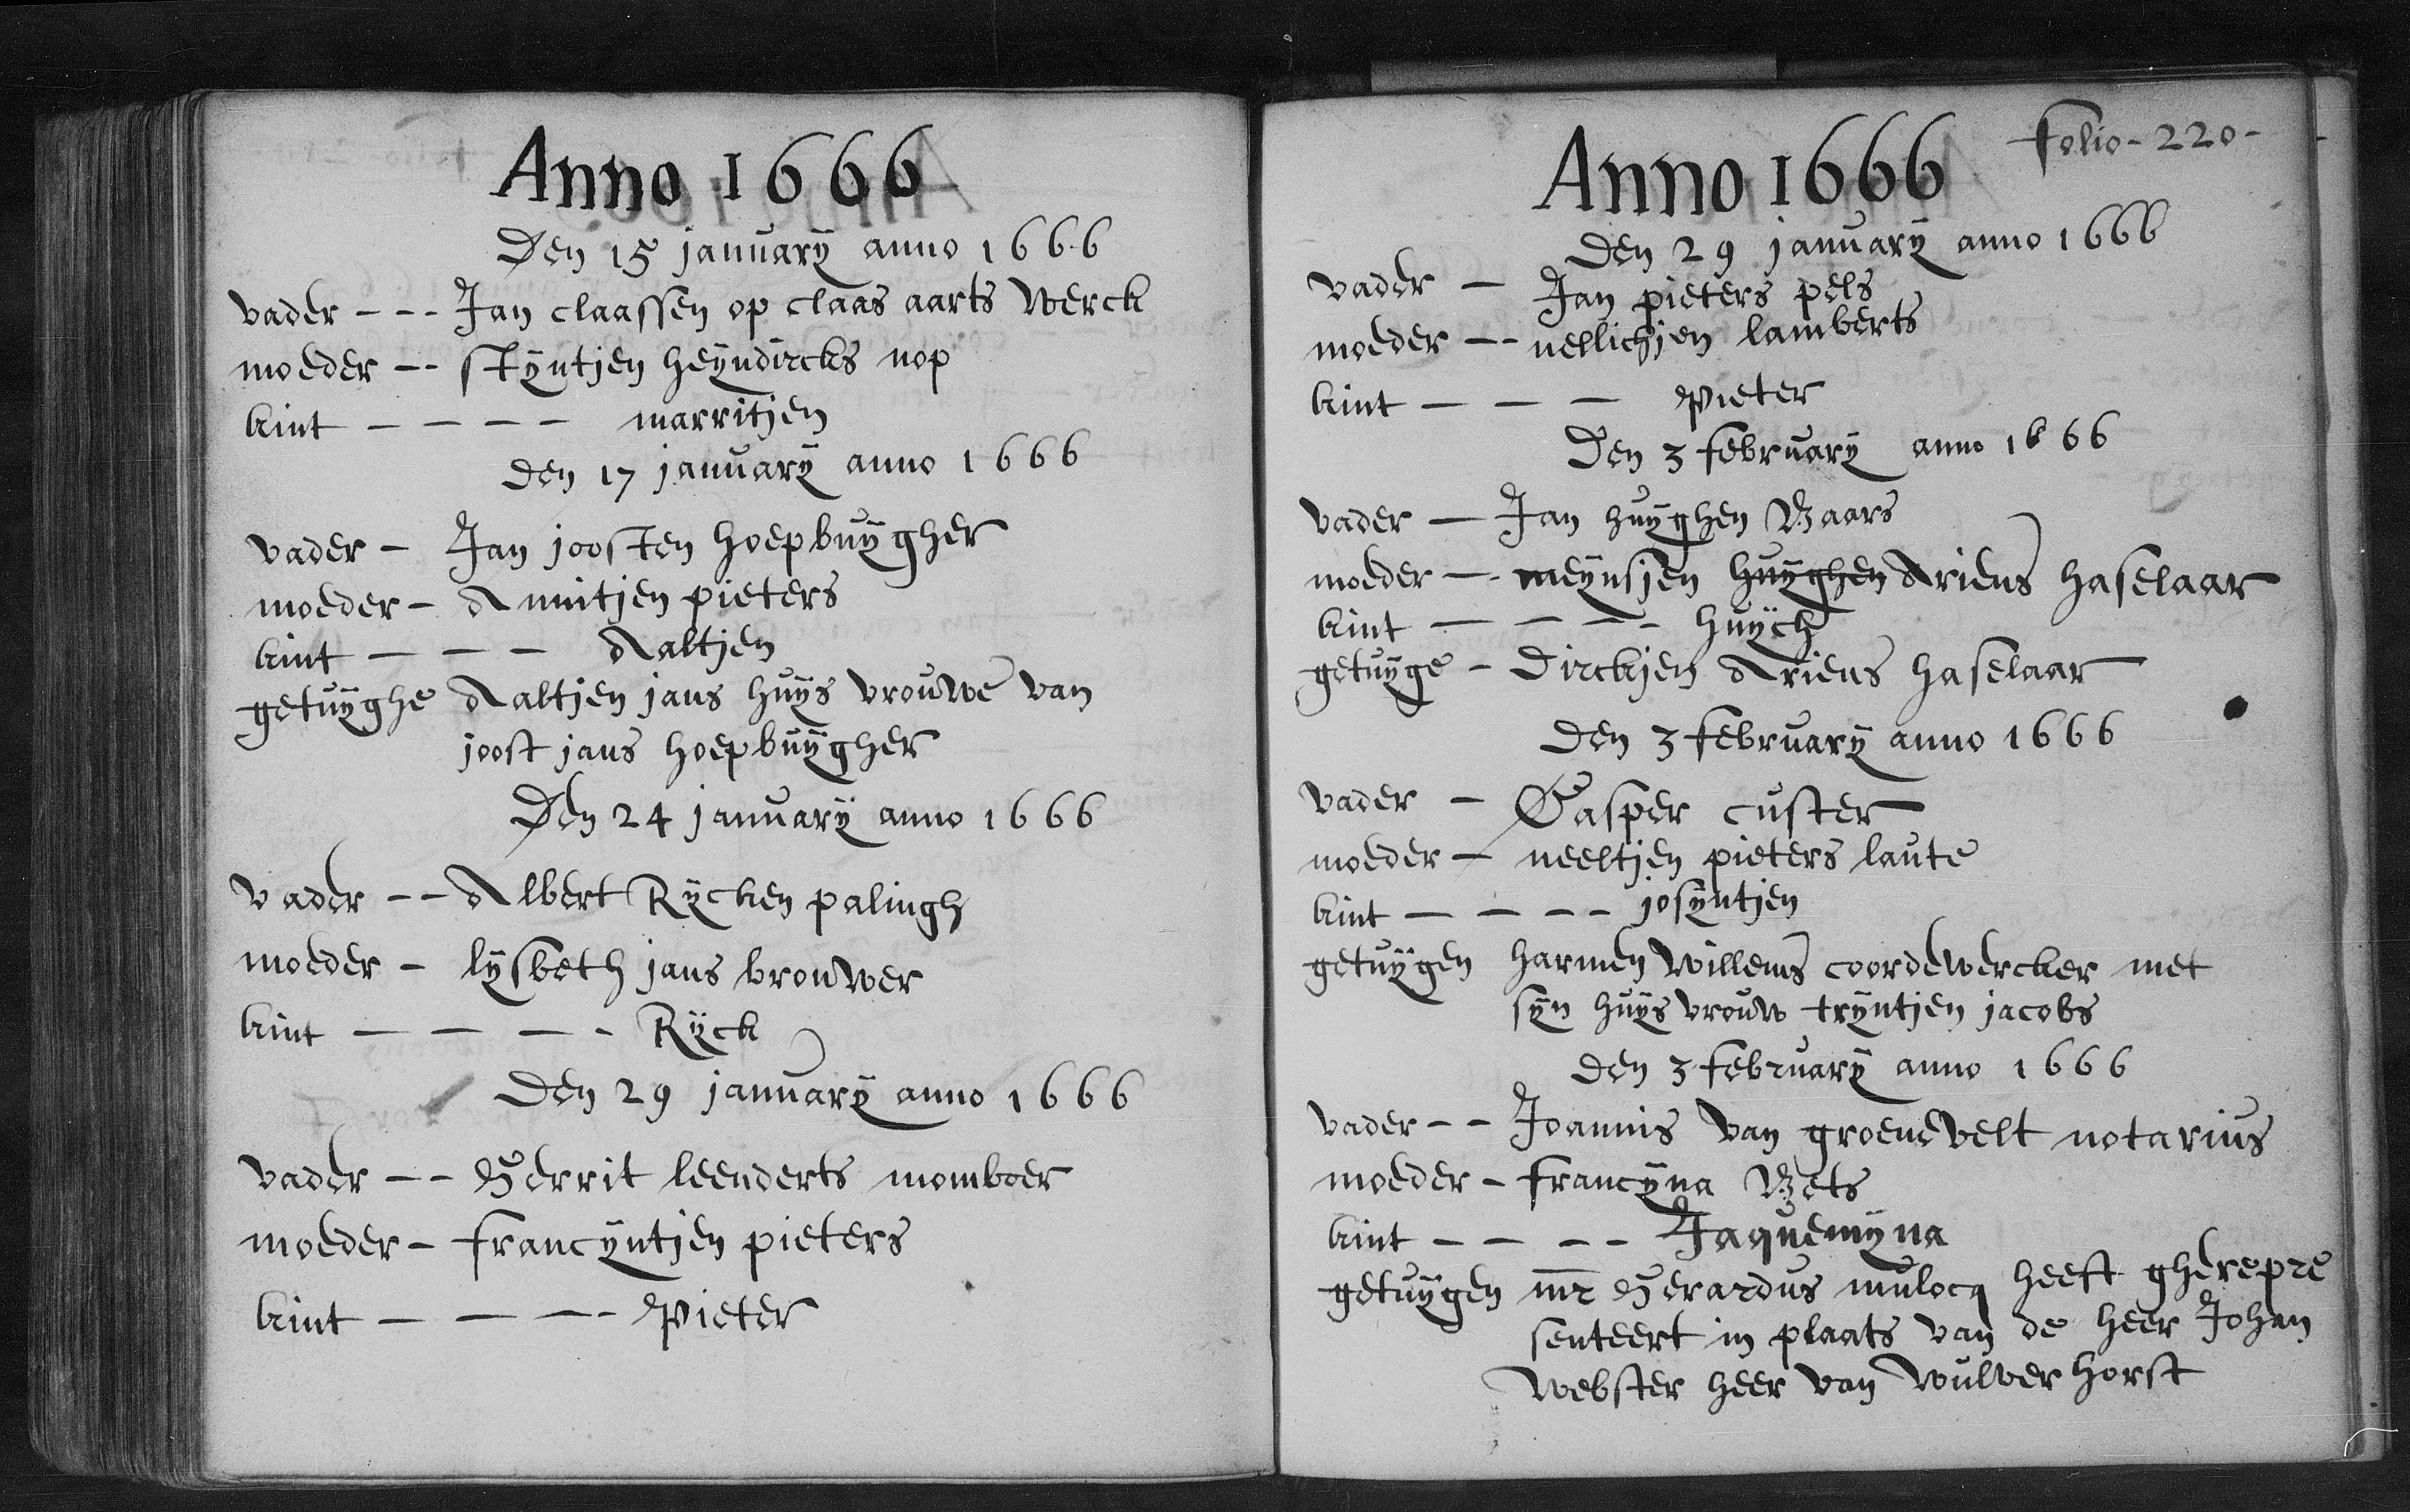 Anno 1666
Den 15 januarÿ anno 1666
vader - - - Jan claassen op claas aarts werck
moeder - - stÿntjen heÿndircks nop
kint - - - - marritjen
den 17 januarÿ anno 1666
vader - Jan joosten hoepbuÿgher
moeder - Annitjen pieters
kint - - - Aaltjen
getuÿghe Aaltjen jans huÿs vrouwe van
joost jans hoepbuÿgher
Den 24 januarÿ anno 1666
vader - - Albert Rÿcken palingh
moeder - lÿsbeth jans brouwer
kint - - - - Rÿck
Den 29 januarÿ anno 1666
vader - - Gerrit leenderts momboer
moeder - francÿntjen pieters
kint - - - - Pieter
Anno 1666
folio - 220 -
Den 29 januarÿ anno 1666
vader - Jan pieters pels
moeder - - nellichjen lamberts
kint - - - Pieter
Den 3 februarÿ anno 1666
vader - Jan huÿghen Baars
moeder - - meÿnsjen huÿghen Ariens haselaar
kint - - - - huÿch
getuÿge - Dirckjen Ariens haselaar
Den 3 februarÿ anno 1666
vader - Casper custer
moeder - neeltjen pieters laute
kint - - - - josÿntjen
getuÿgen harmen willems coordewercker met
sÿn huÿs vrouw trÿntjen jacobs
den 3 februarÿ anno 1666
vader - - Joannis van groenevelt notarius
moeder - francÿna Bets
kint - - - - Jaquemÿna
getuÿgen mr Gerardus mulocq heeft gherepre
senteert in plaats van de heer Johan
webster heer van wulverhorst